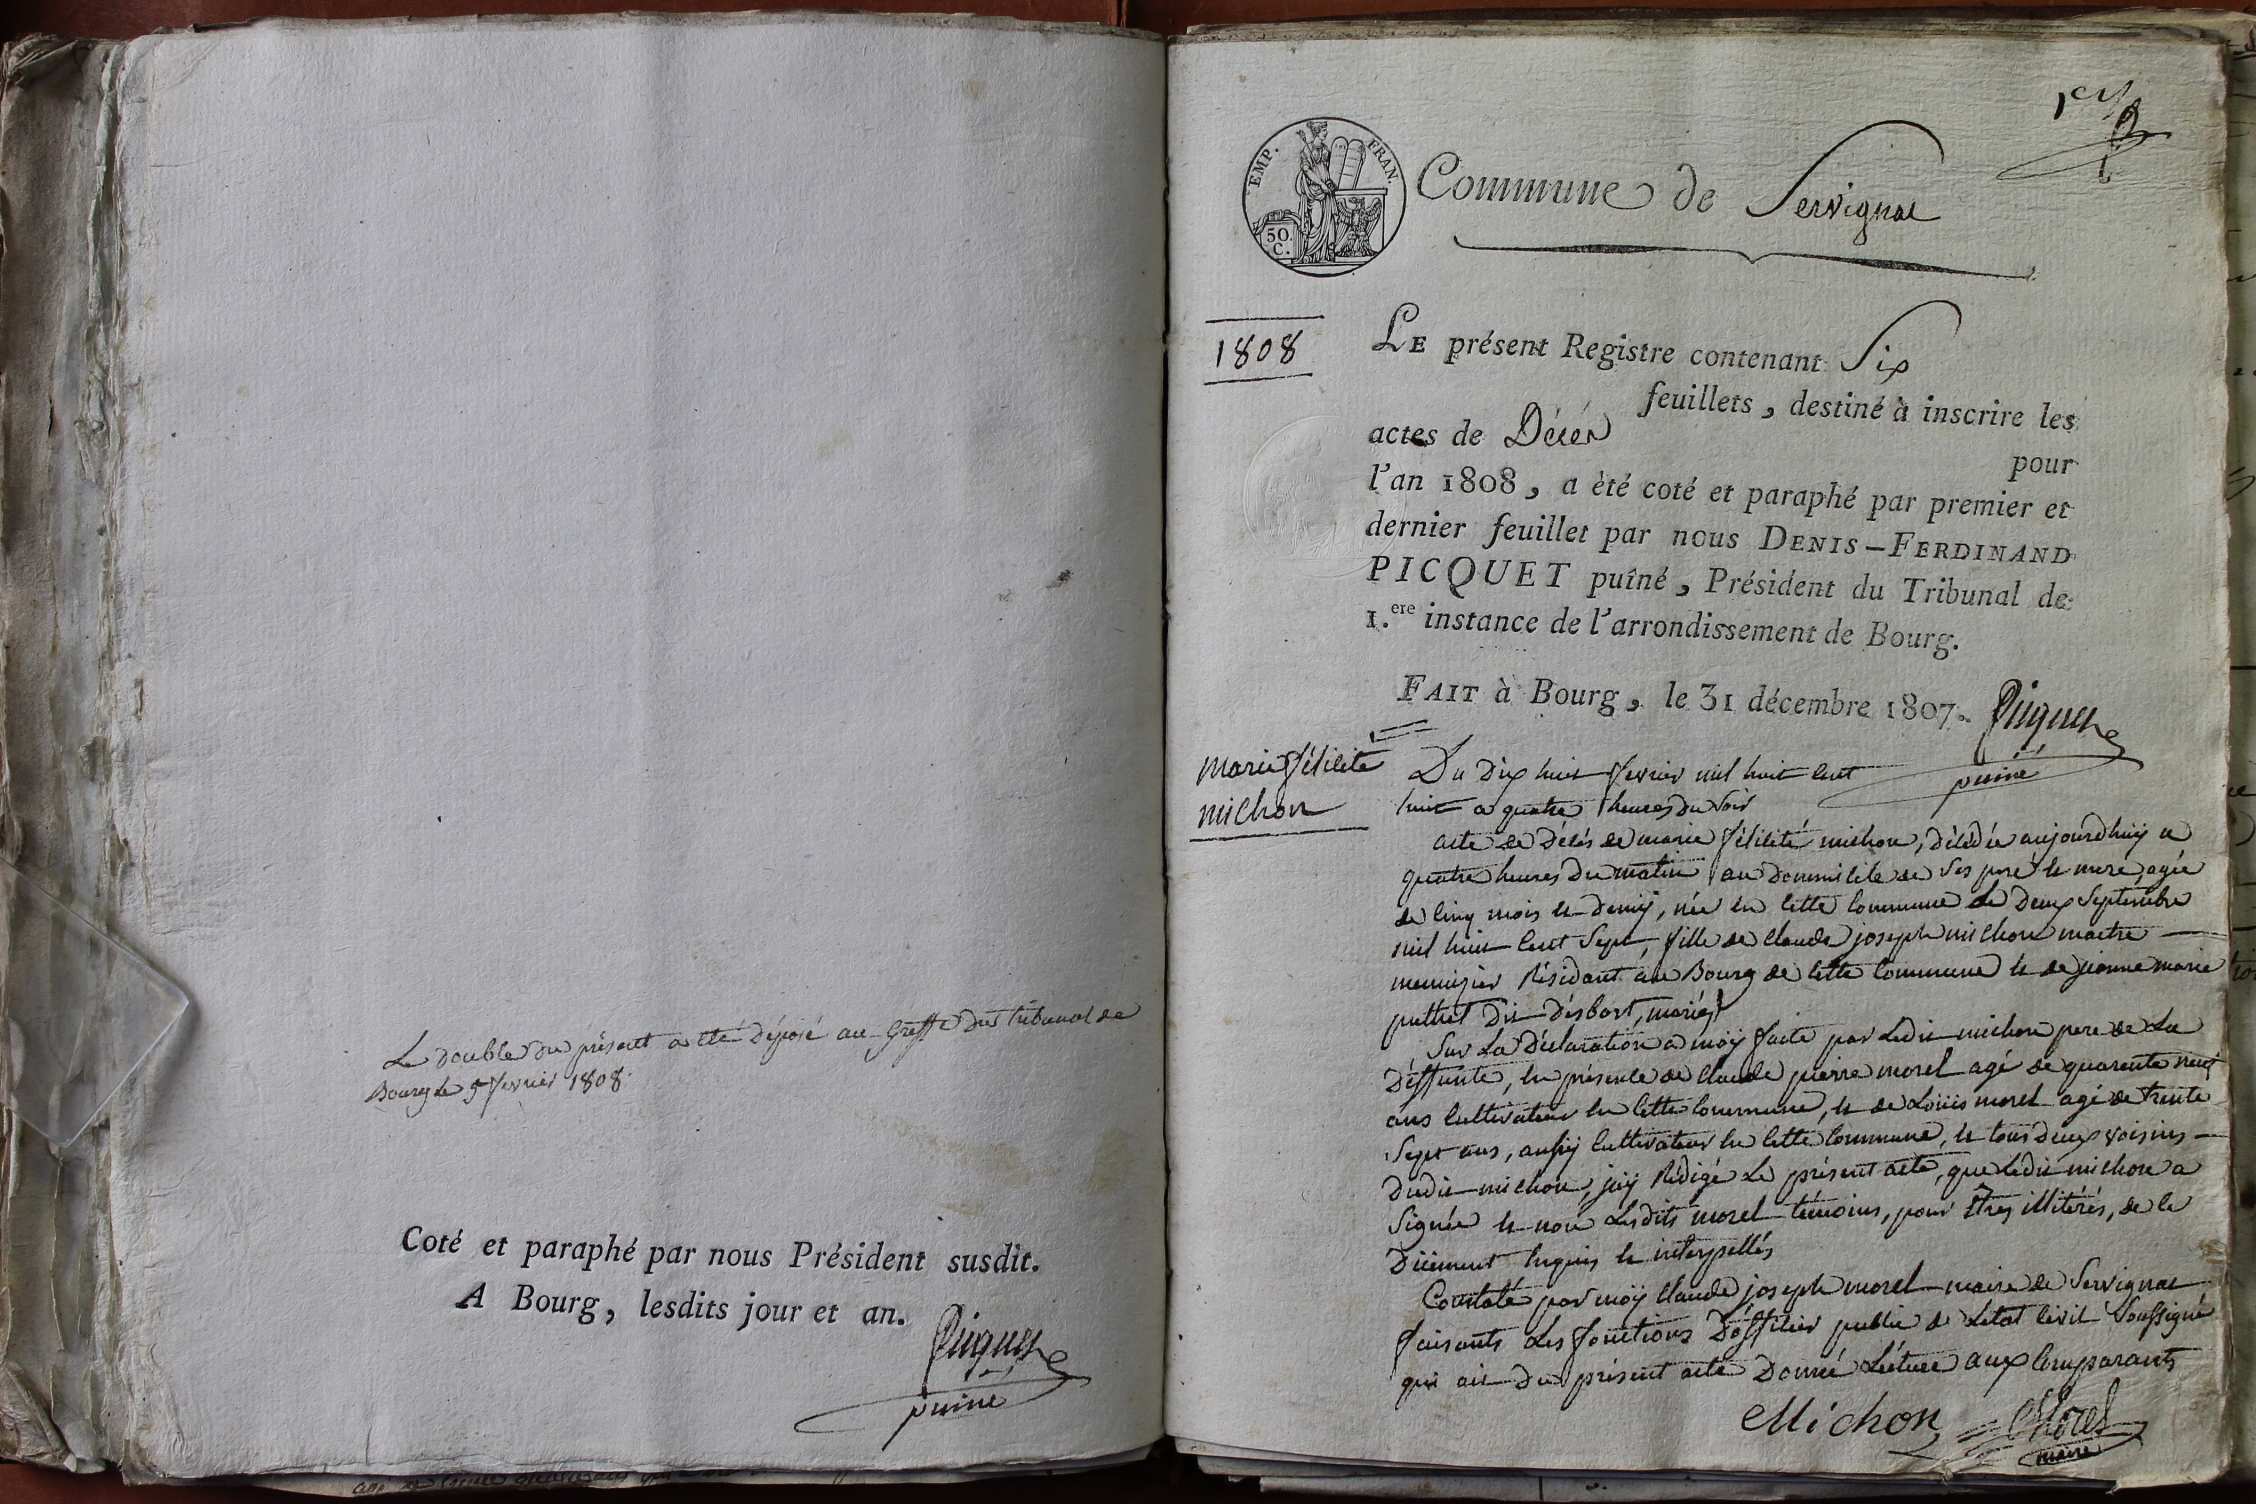 Le Double du présent a été déposé au Greffe du tribunal de
Bourg le 9 fevrier 1808.
Coté et paraphé par nous Président susdit.
A Bourg, lesdits jour et an.
Picquet
puiné
1er
EMP. FRAN.
50
C.
Commune de Servignat
1808
LE présent Registre contenant Six
feuillets, destiné à inscrire les
actes de Décès
pour
l'an 1808, a èté coté et paraphé par premier et
dernier feuillet par nous DENIS-FERDINAND
PICQUET puîné, Président du Tribunal de
1.ere instance de l'arrondissement de Bourg.
FAIT à Bourg, le 31 décembre 1807.
Picquet
puiné
marie félicité
michon
Du Dix huit fevrier mil huit cent
huit a quatre heures du soir
acte de Décés de marie félicité michon, décédée aujourdhuy a
quatre heures du matin au dommicile de ses pere et mere, agée
de cinq mois et demy, née en cette commune Le Deux Septembre
mil huit cent Sept, fille de claude joseph michon maitre
menuizier Résidant au Bourg de cette commune et de jeanne marie
puthet Dit Desbort, mariés
Sur La Déclaration a moÿ faite par Ledit michon pere de La
Déffunte, en présence de claude pierre morel agé de quarente neuf
ans cultivateur en cette commune, et de Loüis morel agé de trente
Sept ans, aussy cultivateur en cette commune, et tous deux voisins
Dudit michon, j'aÿ Rédigé Le présent acte, que Ledit michon a
Signée et non Lesdits morel témoins, pour êtres illitérés, de ce
Düement enquis et interpellés
Constaté par moÿ claude joseph morel maire de Servignat
faisants Les fonctions D'officier public de Létat civil Soussigné
qui ait du présent acte Donné Lécture aux comparants
Michon
Morel
maire